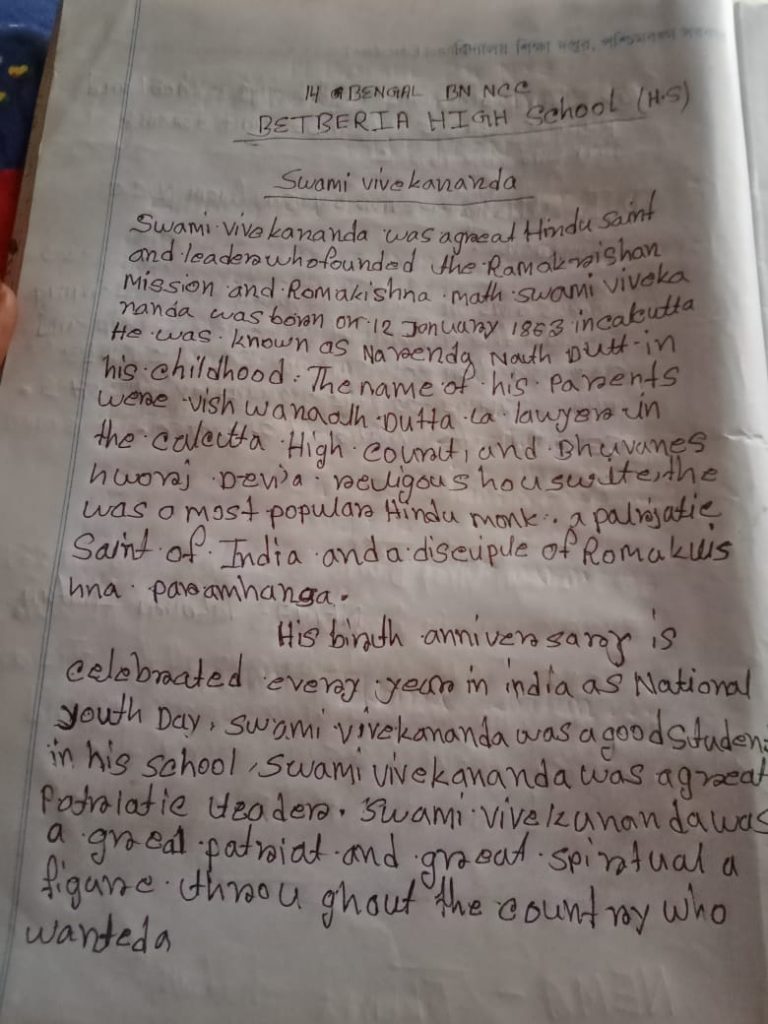 14 BENGAL BN NCC
BETBERIA HIGH School (H.S)
Swami vivekananda
Swami vivekananda was agreat Hindu saint
and leader whofounded the Ramakraishan
Mission and Romakishna math swami viveka
nanda was born on 12 January 1863 incalcutta
He was known as Narenda Nath Dutt in
his childhood. The name of his Parents
were vish wanaath Dutta (a lawyer in
the calcutta High Court, and Bhuvanes
hwori Devi a religous houswite, the
was a most popular Hindu monk. a patriatic
Saint of India and a disciple of Romakris
hna paramhanga.
His birth anniversary is
celebrated every year in india as National
youth Day, swami vivekananda was a good Studen
in his school, Swami vivekananda was agreat
Patriatic leader. Swami vivekananda was
a great patriat and great spiritual a
figure throu ghout the country who
wanted a